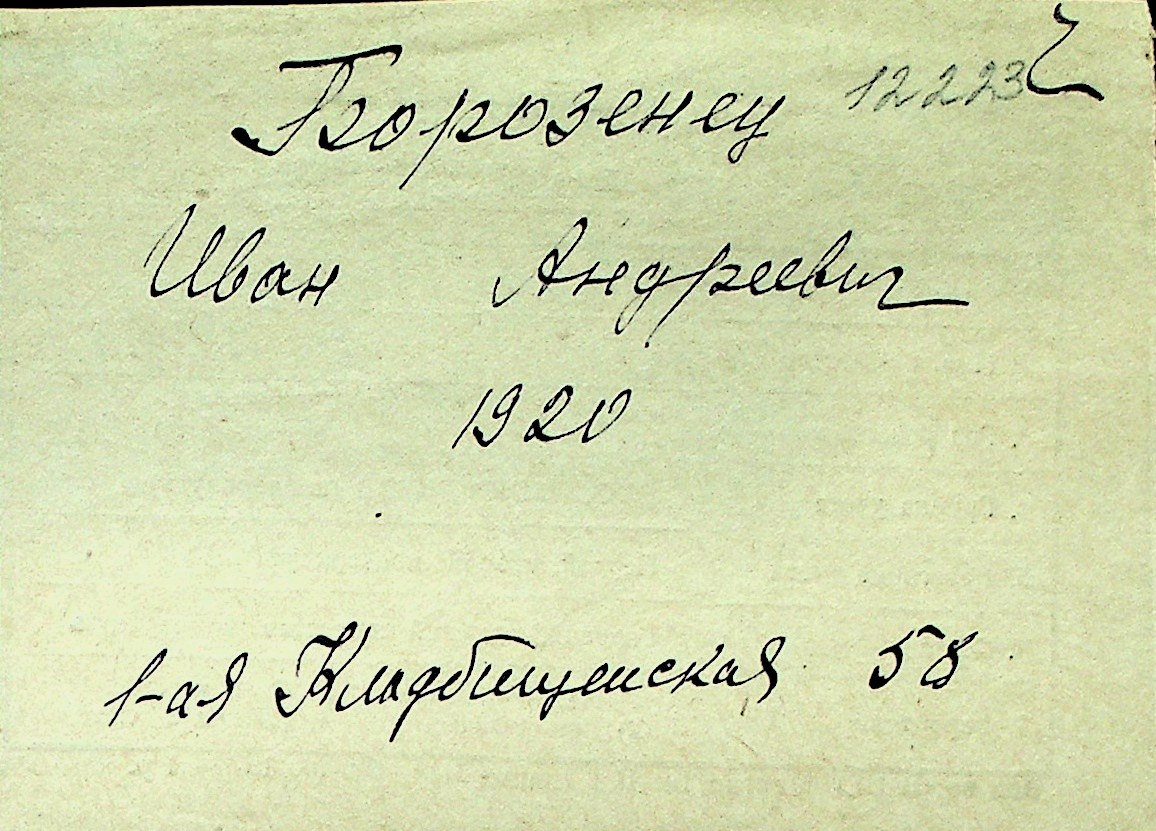 Борозенец 12223
Иван Андреевич
1920
1-ая Кладбищенская 58